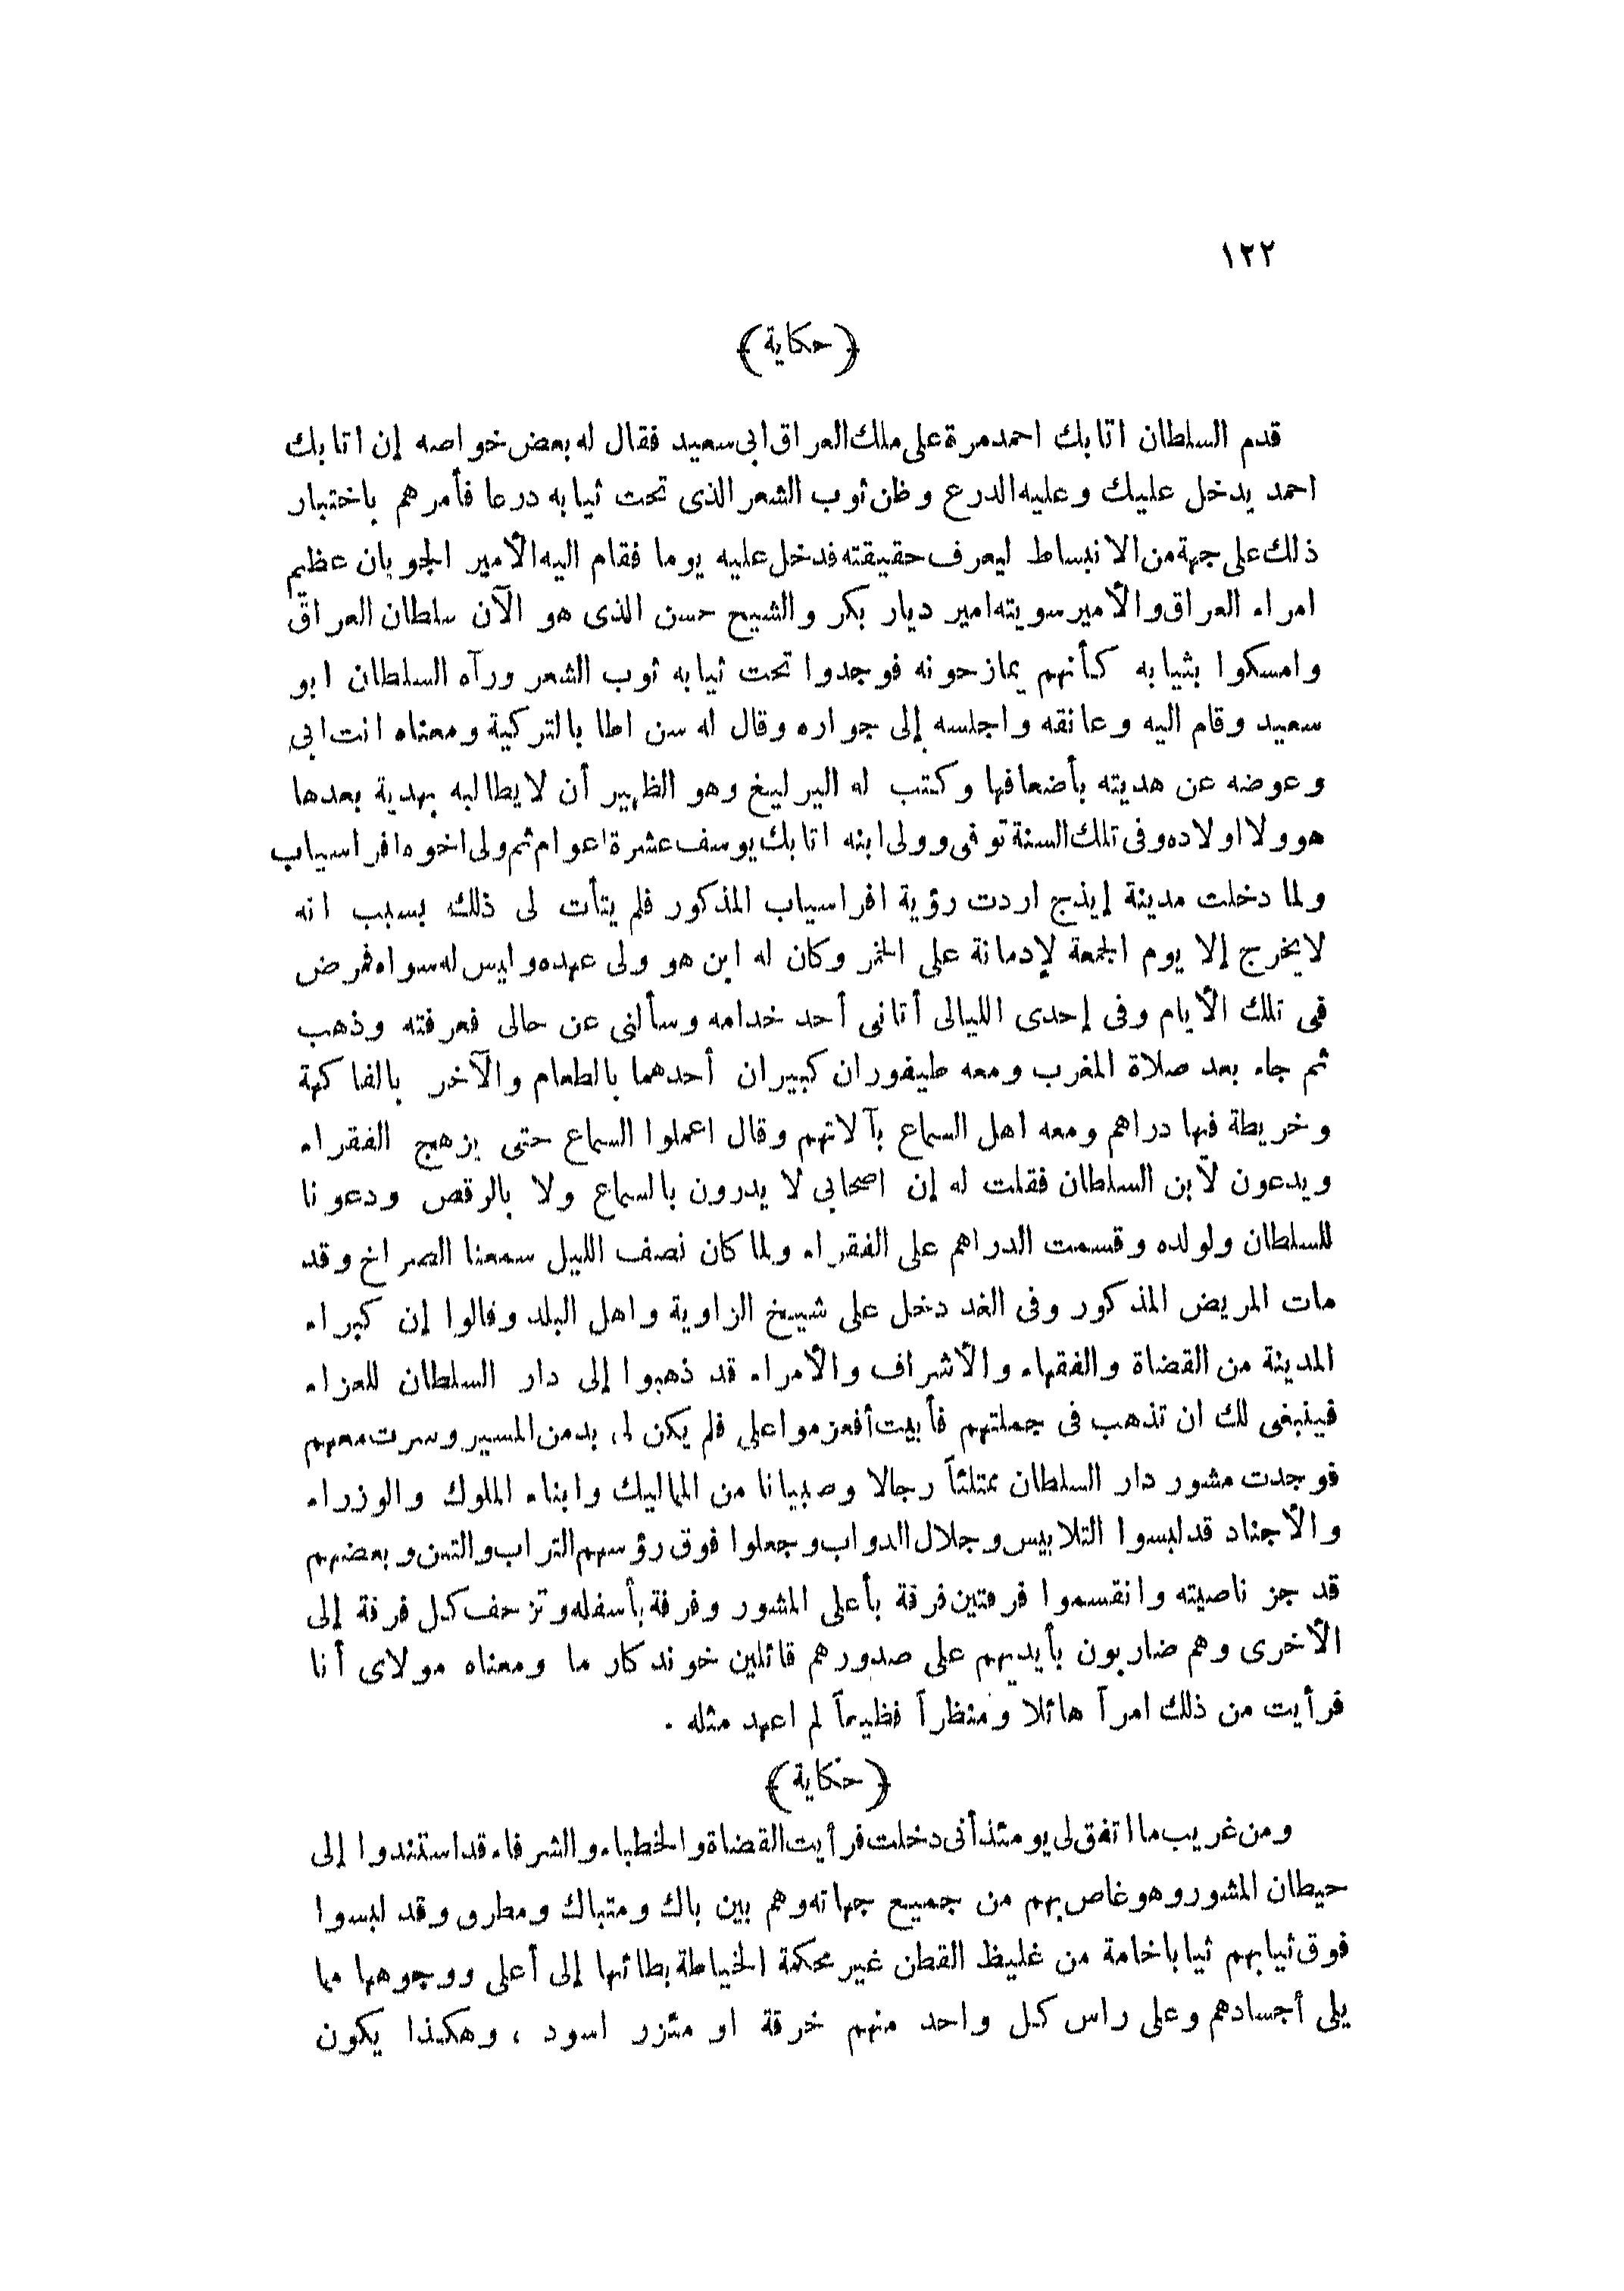 ١٢٢
﴿ حكاية ﴾
قدم السلطان اتابك احمد مرة على ملك العراق ابى سعيد فقال له بعض خواصه إن اتابك
احمد يدخل عليك وعليه الدرع وظن ثوب الشعر الذى تحت ثيابه درعا فأمرهم باختبار
ذلك على جهة من الانبساط ليعرف حقيقته فدخل عليه يوما فقام اليه الأمير الجوبان عظيم
امراء العراق والأمير سويته امير ديار بكر والشيخ حسن الذى هو الآن سلطان العراق
وامسكوا بثيابه كأنهم يمازحونه فوجدوا تحت ثيابه ثوب الشعر ورآه السلطان ابو
سعيد وقام اليه وعانقه واجلسه إلى جواره وقال له سن اطا بالتركية ومعناه انت ابى
وعوضه عن هديته بأضعافها وكتب له اليرليغ وهو الظهير أن لا يطالبه بهدية بعدها
هو ولا اولاده وفى تلك السنة توفى وولى ابنه اتابك يوسف عشرة اعوام ثم ولى اخوه افراسياب
ولما دخلت مدينة إيذج اردت رؤية افراسياب المذكور فلم يتأت لى ذلك بسبب انه
لا يخرج إلا يوم الجمعة لإدمانة على الخمر وكان له ابن هو ولى عهده وليس له سواه فمرض
فى تلك الأيام وفى إحدى الليالى أتانى أحد خدامه وسألنى عن حالى فعرفته وذهب
ثم جاء بعد صلاة المغرب ومعه طيفوران كبيران أحدهما بالطعام والآخر بالفاكهة
وخريطة فيها دراهم ومعه اهل السماع بآلاتهم وقال اعملوا السماع حتى يزهج الفقراء
ويدعون لآبن السلطان فقلت له إن اصحابى لا يدرون بالسماع ولا بالرقص ودعونا
للسلطان ولولده وقسمت الدراهم على الفقراء ولما كان نصف الليل سمعنا الصراخ وقد
مات المريض المذكور وفى الغد دخل على شيخ الزاوية واهل البلد وقالوا إن كبراء
المدينة من القضاة والفقهاء والأشراف والأمراء قد ذهبوا إلى دار السلطان للعزاء
فينبغى لك ان تذهب فى جملتهم فأبيت أفعزموا على فلم يكن لى بد من المسير وسرت معهم
فوجدت مشور دار السلطان ممتلئاً رجالا وصبيانا من المماليك وابناء الملوك والوزراء
والأجناد قد لبسوا التلابيس وجلال الدواب وجعلوا فوق رؤسهم التراب والتبن وبعضهم
قد جز ناصيته وانقسموا فرقتين فرقة بأعلى المشور وفرقة بأسفله وتزحف كل فرقة إلى
الأخرى وهم ضاربون بأيديهم على صدورهم قائلين خوند كار ما ومعناه مولاى أنا
فرأيت من ذلك امرآ هائلا ومنظرآ فظيعاً لم اعهد مثله .
﴿ حكاية ﴾
ومن غريب ما اتفق لى يومئذ أنى دخلت فرأيت القضاة والخطباء والشرفاء قد استندوا إلى
حيطان المشور وهو غاص بهم من جميع جهاته وهم بين باك ومتباك ومطرق وقد لبسوا
فوق ثيابهم ثيابا خامة من غليظ القطن غير محكمة الخياطة بطائنها إلى أعلى ووجوهها مما
يلى أجسادهم وعلى راس كل واحد منهم خرقة او مئزر اسود ، وهكذا يكون